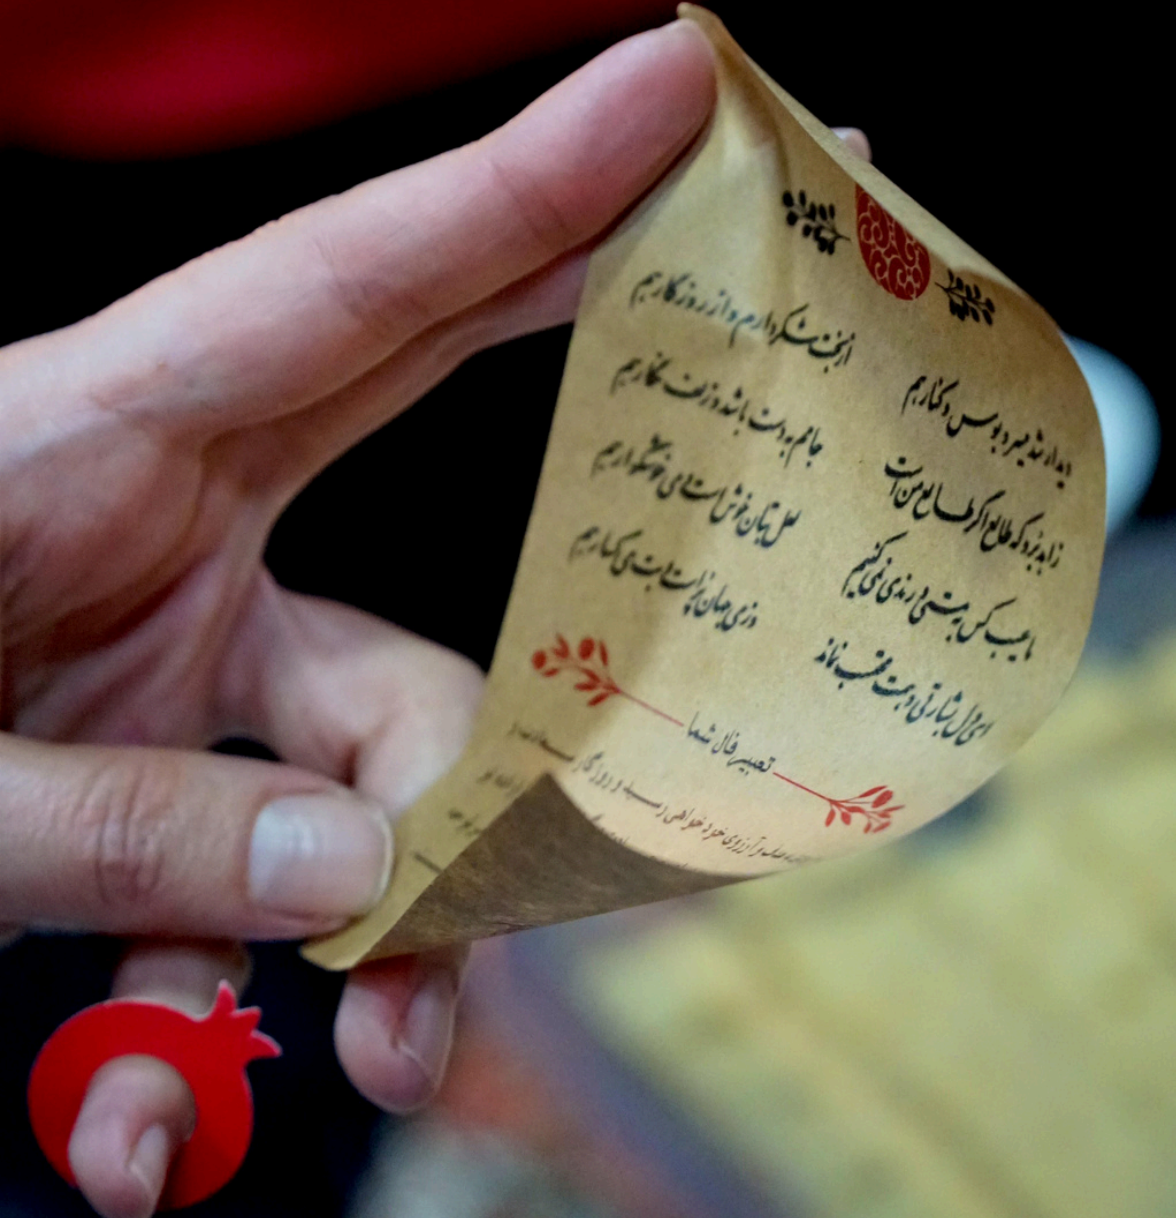 دیدار شد میسر و بوس و کنار هم از بخت شکر دارم و از روزگار هم
زاهد برو که طالع اگر طالع من است جامم به دست باشد و زلف نگار هم
ما عیب کس به مستی و رندی نمی کنیم لعل بتان خوش است و می خوشگوار هم
ای دل بشارتی دهمت محتسب نماند وز می جهان پر است و بت می گسار هم
تعبیر فال شما
و آرزوی خود خواهی رسید و روزگار